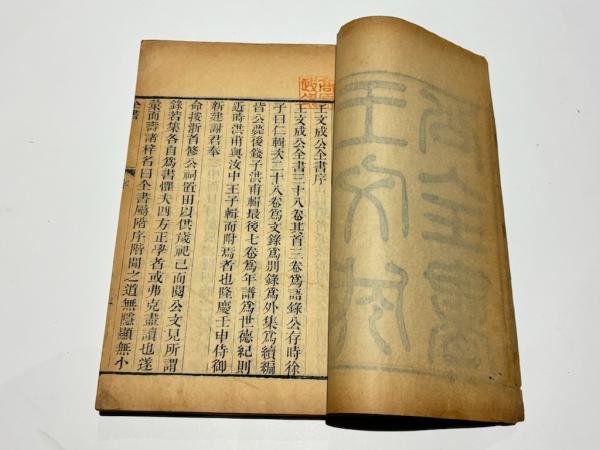 王文成公全書序
王文成公全書三十八卷其首三卷爲語錄公存時徐
子曰仁輯次二十八卷爲文錄爲別錄爲外集爲續編
皆公薨後錢子洪甫輯最後七卷爲年譜爲世德紀則
近時洪甫與汝中王子輯而附焉者也隆慶壬申侍御
新建謝君奉
命按浙首修公祠置田以供歲祀已而閱公文見所謂
錄若集各自爲書懼夫四方正學者或弗克盡讀也遂
彙而壽諸梓名曰全書屬階序階聞之道無隱顯無小
全書
序
王文成